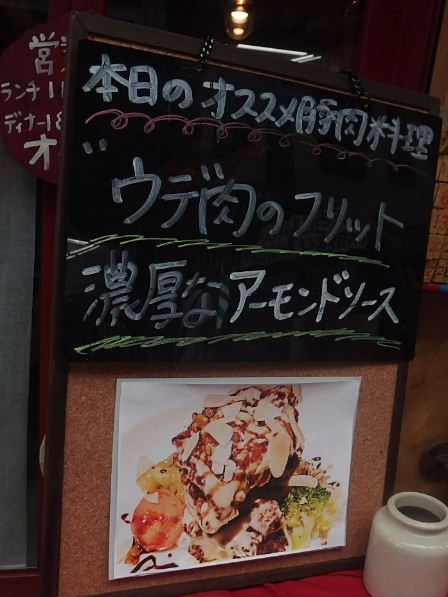 本日のオススメ豚肉料理
ウデ肉のフリット
濃厚なアーモンドソース
営
ランチ 1
ディナー 18
オ